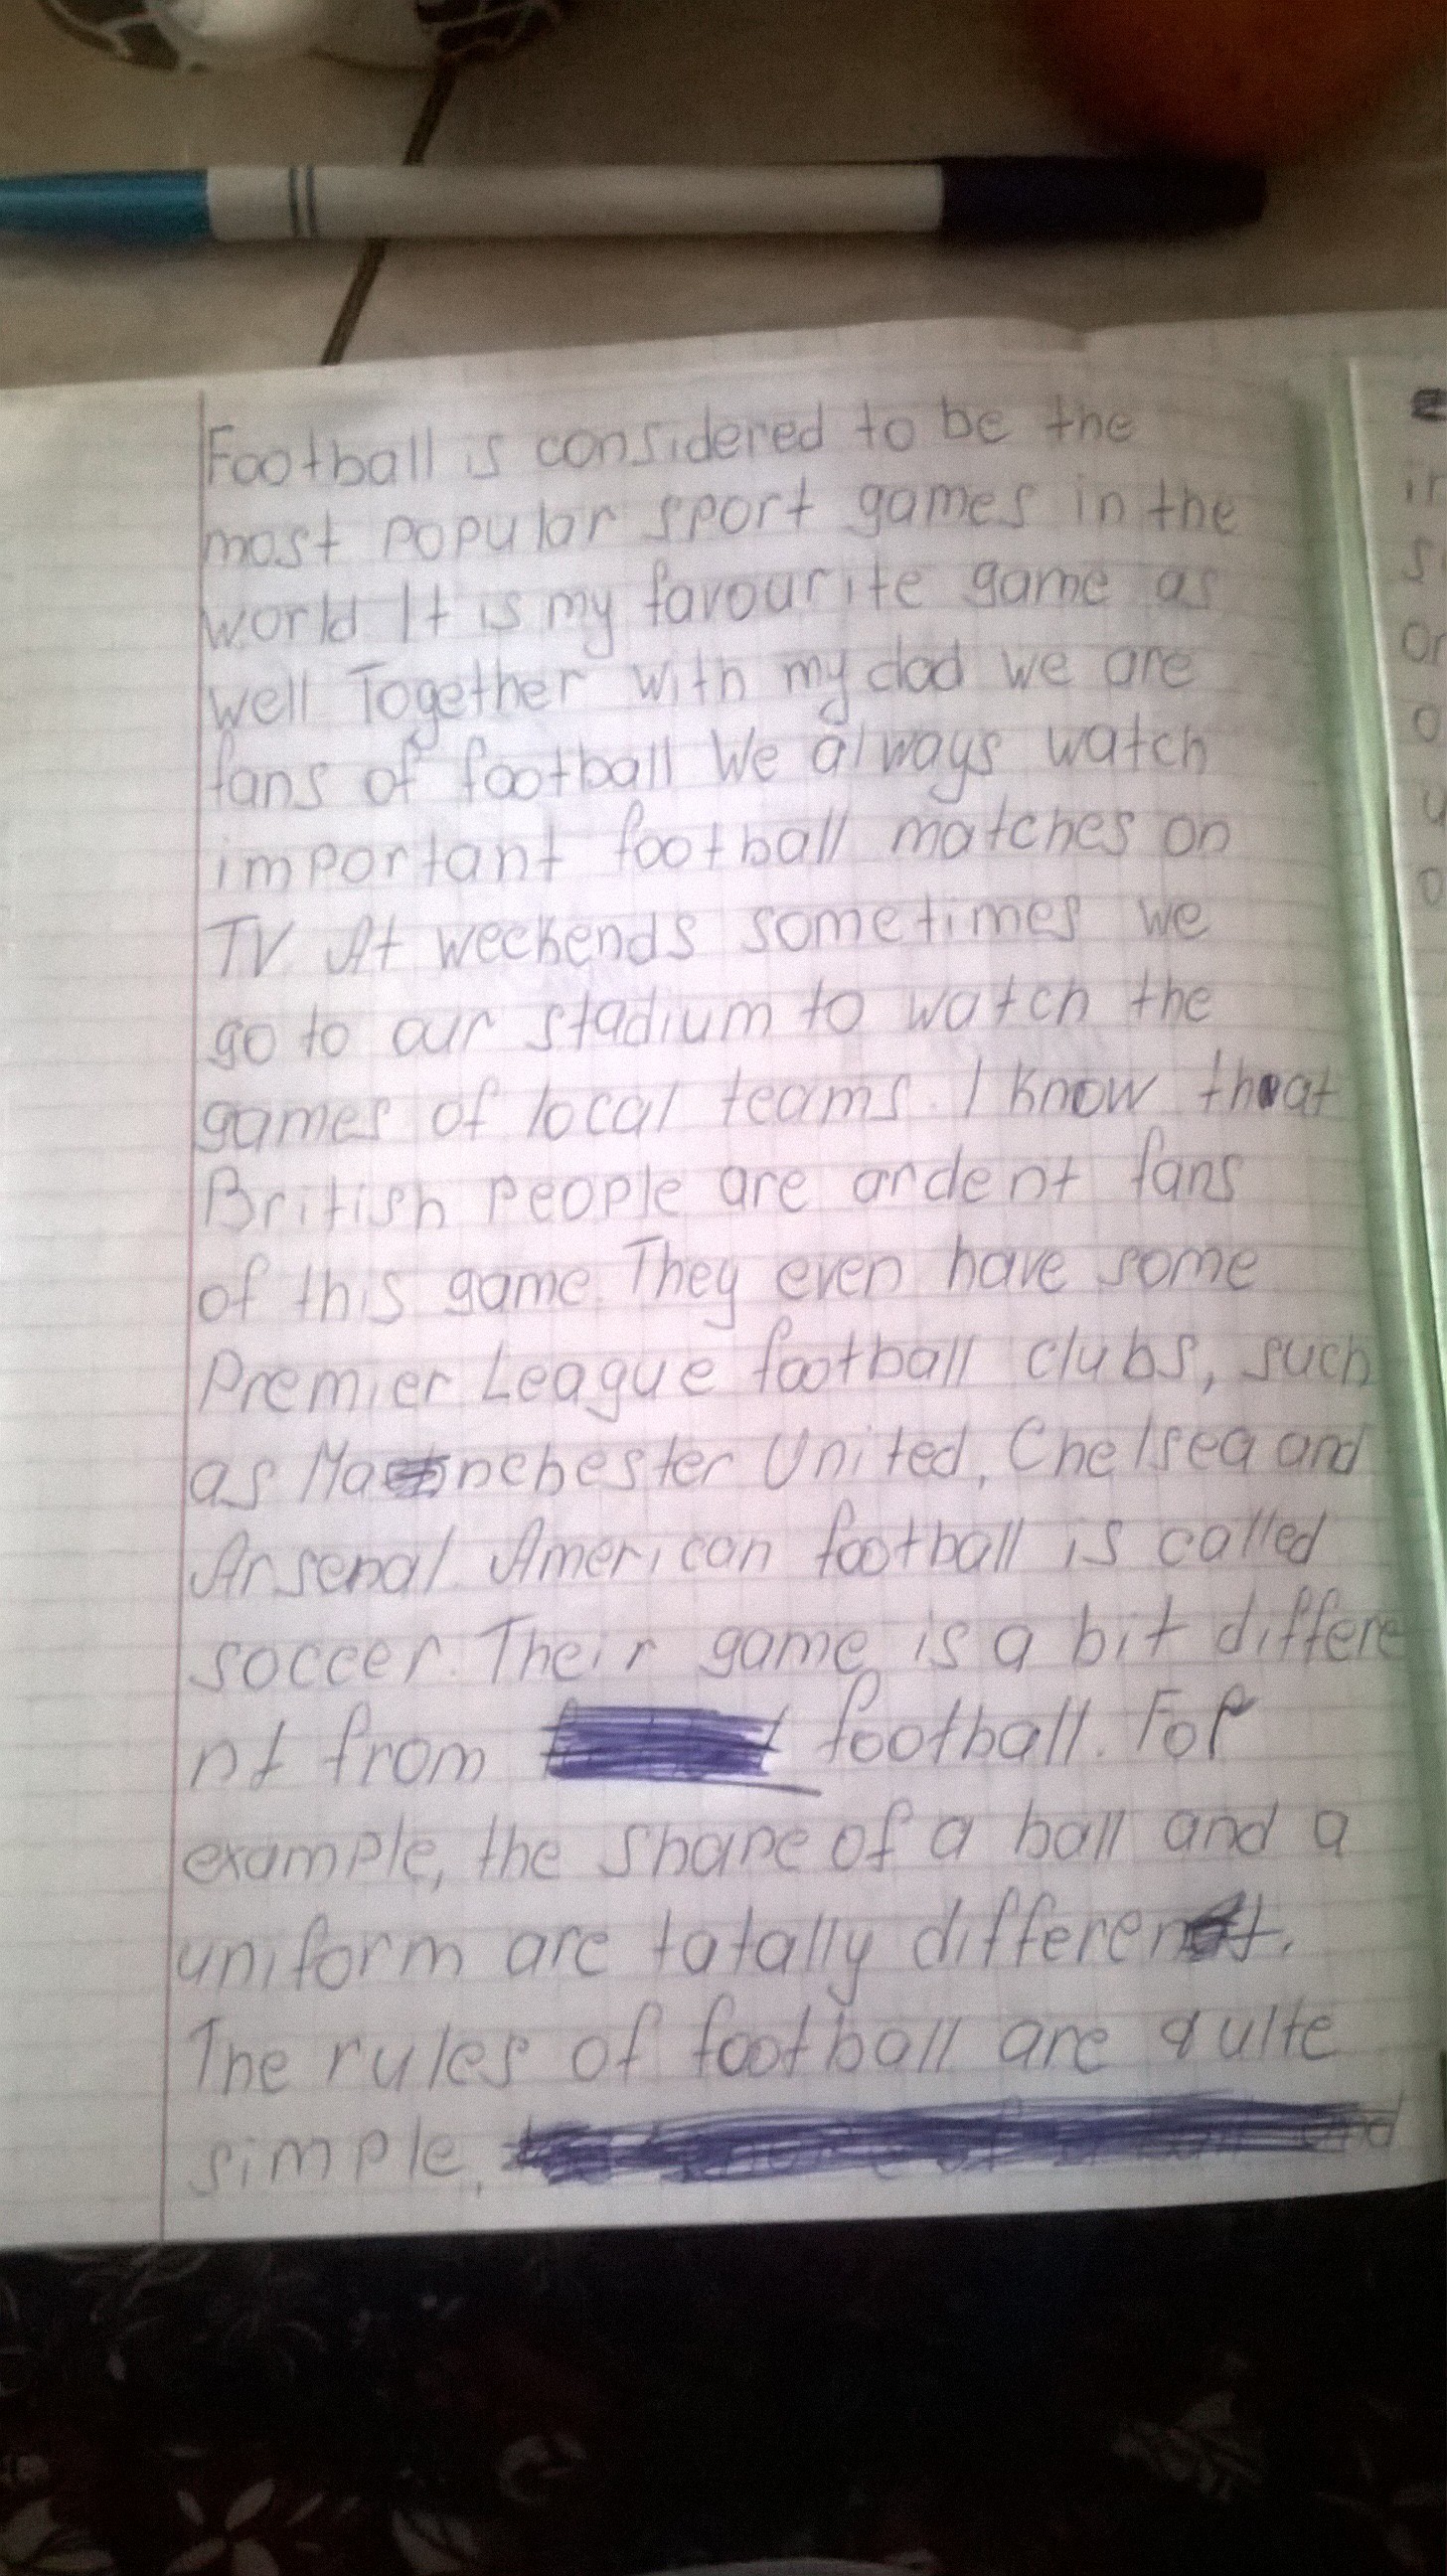 Football is considered to be the
most popular sport games in the
world It is my favourite game as
well Together with my dad we are
fans of football We always watch
important football matches on
TV. At weekends sometimes we
go to our stadium to watch the
games of local teams. I know that
British people are ardent fans
of this game. They even have some
Premier League football clubs, such
as Manchester United, Chelsea and
Arsenal. American football is called
soccer. Their game is a bit differe
nt from football. For
example, the shape of a ball and a
uniform are tatally different.
The rules of football are quite
simple,